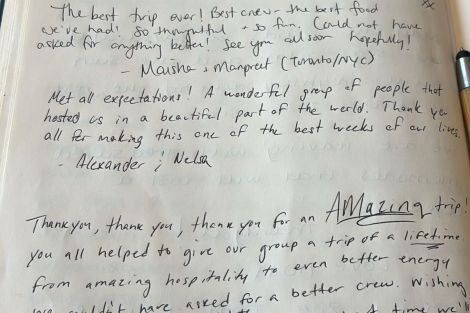 The best trip ever! Best crew - the best food
we've had! So thoughtful + so fun. Could not have
asked for anything better! See you all soon hopefully!
- Maisha & Manpreet (Toronto/NYC)
Met all expectations! A wonderful group of people that
hosted us in a beautiful part of the world. Thank you
all for making this one of the best weeks of our lives.
- Alexander & Nelsa
Thank you, thank you, thank you for an AMAZING trip!
you all helped to give our group a trip of a lifetime
from amazing hospitality to even better energy
couldn't have asked for a better crew. Wishing
A time we'll